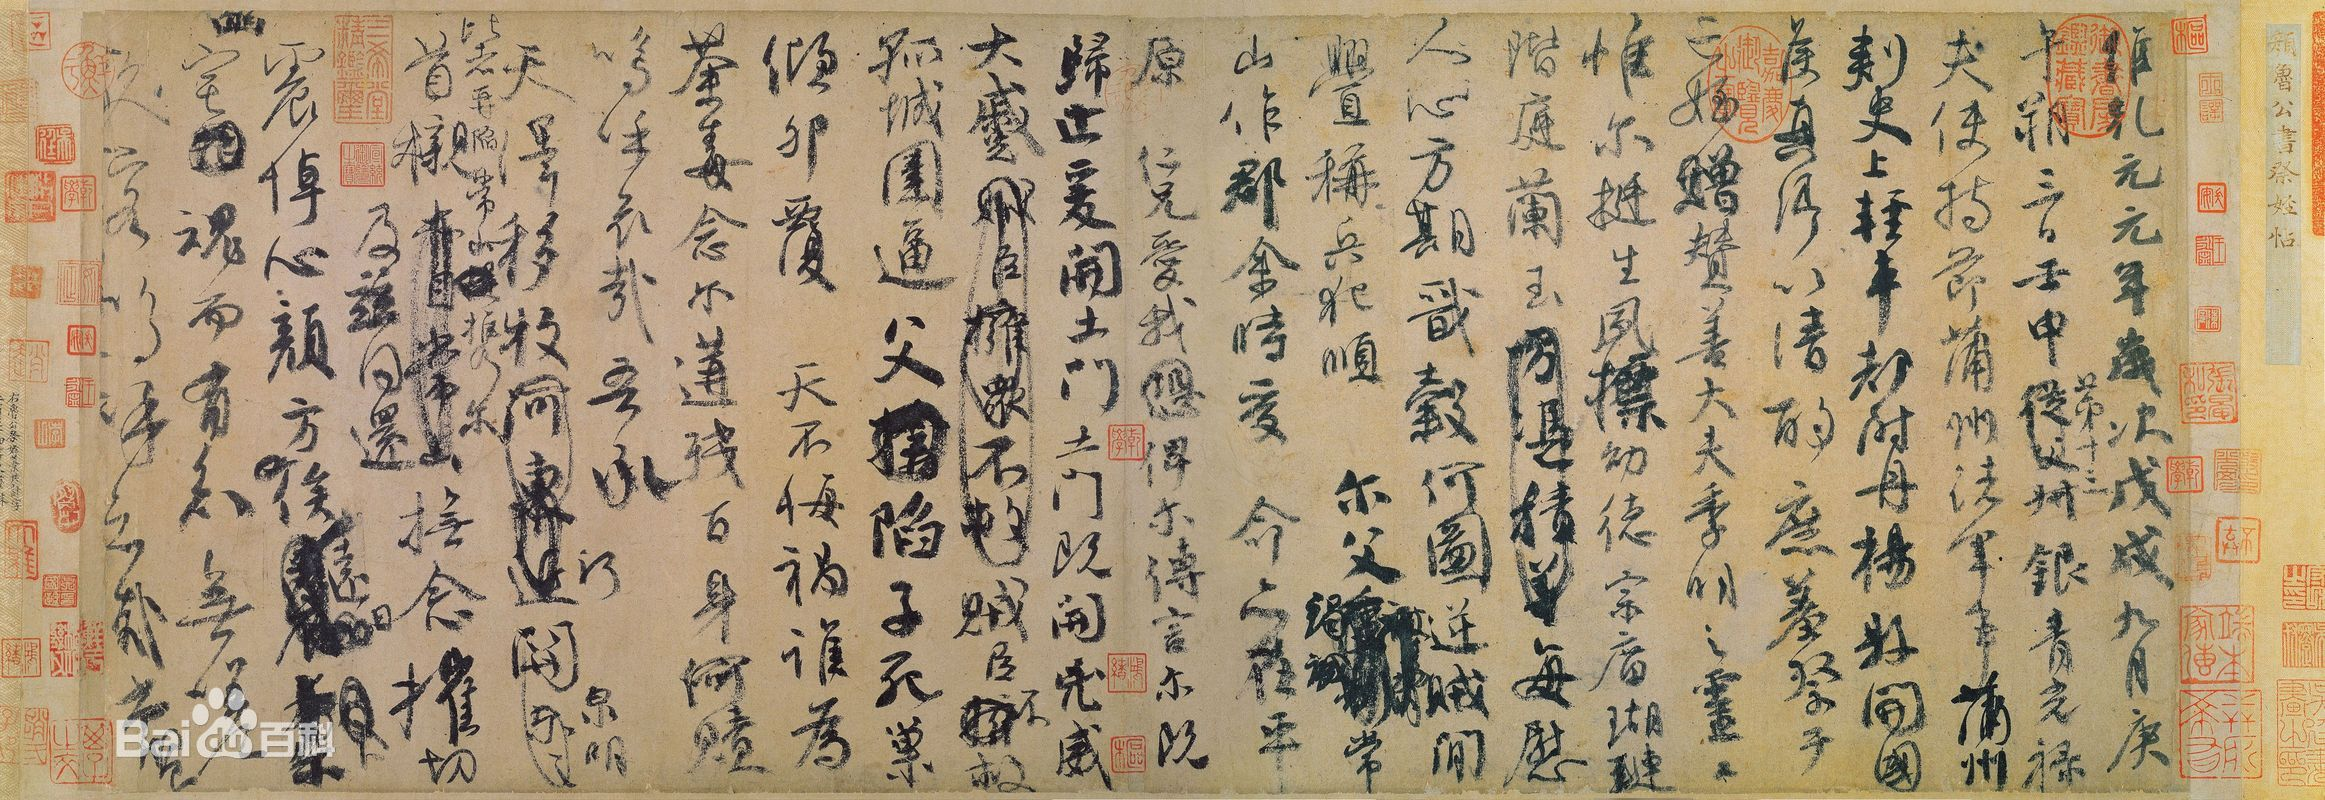 顏魯公書祭姪帖
維乾元元年歲次戊戌九月庚
午朔三日壬申第十三從父叔銀青光祿
夫使持節蒲州諸軍事蒲州
刺史上輕車都尉丹楊縣開國
侯真卿以清酌庶羞祭于
亡姪贈贊善大夫季明之靈曰
惟爾挺生夙標幼德宗廟瑚璉
階庭蘭玉方憑積善每慰
人心方期戩穀何圖逆賊閒
舋稱兵犯順爾父竭誠常
山作郡余時受命亦在平
原仁兄愛我恐俾爾傳言爾既
歸止爰開土門土門既開兇威
大蹙賊臣擁眾不救賊臣不救
孤城圍逼父擒陷子死巢
傾卵覆天不悔禍誰為
荼毒念爾遘殘百身何贖
嗚呼哀哉吾承
天澤移牧河東近河關泉明
比者再陷常山攜爾
首櫬常山及茲同還撫念摧切
震悼心顏方俟遠日
宅魂而有知無嗟
久客嗚呼哀哉尚饗
Bai百科